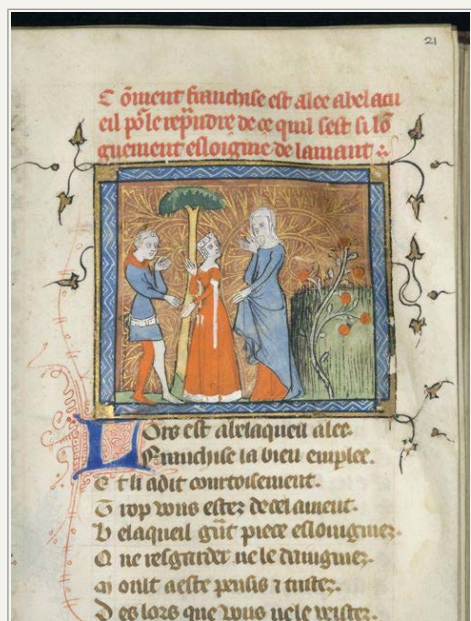 21
Cõment franchise est alee a bel acu
eil põ le reprendre de ce quil sest si lõ
guement esloigne de lamant
Lors est a belaqueil alee.
Franchise la bien emplee.
Et li a dit courtoisement.
Trop vous estes de cel ament.
Belaqueil grãt piece eslongniez.
Que resgarder ne le daingniez.
Moult a este pensis & tristez.
Des lors que vous ne le veistez.